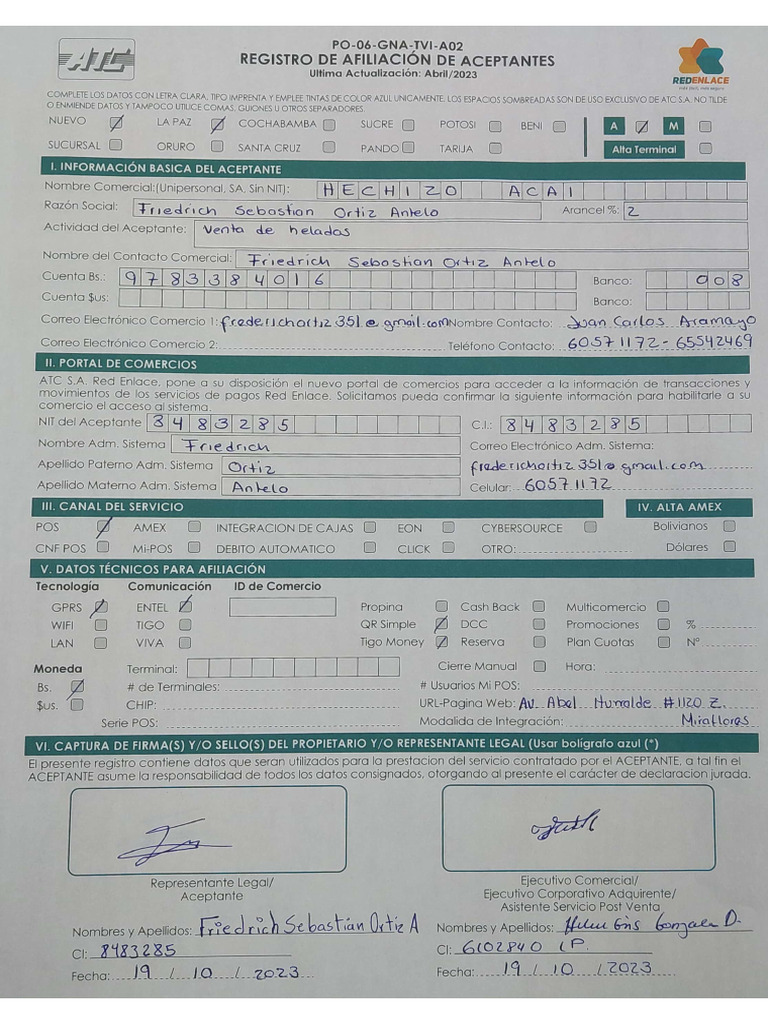 ATC
PO-06-GNA-TVI-A02
REGISTRO DE AFILIACIÓN DE ACEPTANTES
Ultima Actualización: Abril/2023
REDENLACE
COMPLETE LOS DATOS CON LETRA CLARA, TIPO IMPRENTA Y EMPLEE TINTAS DE COLOR AZUL UNICAMENTE. LOS ESPACIOS SOMBREADAS SON DE USO EXCLUSIVO DE ATC S.A. NO TILDE
O ENMIENDE DATOS Y TAMPOCO UTILICE COMAS, GUIONES U OTROS SEPARADORES.
NUEVO LA PAZ COCHABAMBA SUCRE POTOSI BENI A M
SUCURSAL ORURO SANTA CRUZ PANDO TARIJA Alta Terminal
I. INFORMACIÓN BASICA DEL ACEPTANTE
Nombre Comercial:(Unipersonal, SA, Sin NIT): HECHIZO ACAI
Razón Social: Friedrich Sebastian Ortiz Antelo Arancel %: 2
Actividad del Aceptante: Venta de helados
Nombre del Contacto Comercial: Friedrich Sebastian Ortiz Antelo
Cuenta Bs.: 9783384016 Banco: 908
Cuenta $us: Banco:
Correo Electrónico Comercio 1: frederichortiz351@gmail.com Nombre Contacto: Juan Carlos Aramayo
Correo Electrónico Comercio 2: Teléfono Contacto: 60571172-65542469
II. PORTAL DE COMERCIOS
ATC S.A. Red Enlace, pone a su disposición el nuevo portal de comercios para acceder a la información de transacciones y
movimientos de los servicios de pagos Red Enlace. Solicitamos pueda confirmar la siguiente información para habilitarle a su
comercio el acceso al sistema.
NIT del Aceptante 3483285 C.I.: 8483285
Nombre Adm. Sistema Friedrich Correo Electrónico Adm. Sistema:
Apellido Paterno Adm. Sistema Ortiz frederichortiz351@gmail.com
Apellido Materno Adm. Sistema Antelo Celular: 60571172
III. CANAL DEL SERVICIO IV. ALTA AMEX
POS AMEX INTEGRACION DE CAJAS EON CYBERSOURCE Bolivianos
CNF POS Mi-POS DEBITO AUTOMATICO CLICK OTRO: Dólares
V. DATOS TÉCNICOS PARA AFILIACIÓN
Tecnología Comunicación ID de Comercio
GPRS ENTEL Propina Cash Back Multicomercio
WIFI TIGO QR Simple DCC Promociones %
LAN VIVA Tigo Money Reserva Plan Cuotas Nº
Moneda Terminal: Cierre Manual Hora:
Bs. # de Terminales: # Usuarios Mi POS:
$us. CHIP: URL-Pagina Web: Av. Abel Iturralde #1120 Z.
Serie POS: Modalida de Integración: Miraflores
VI. CAPTURA DE FIRMA(S) Y/O SELLO(S) DEL PROPIETARIO Y/O REPRESENTANTE LEGAL (Usar bolígrafo azul (*)
El presente registro contiene datos que seran utilizados para la prestacion del servicio contratado por el ACEPTANTE, a tal fin el
ACEPTANTE asume la responsabilidad de todos los datos consignados, otorgando al presente el carácter de declaracion jurada.
Representante Legal/
Aceptante
Ejecutivo Comercial/
Ejecutivo Corporativo Adquirente/
Asistente Servicio Post Venta
Nombres y Apellidos: Friedrich Sebastian Ortiz A
CI: 8483285
Fecha: 19 / 10 / 2023
Nombres y Apellidos: D.
CI: 6102840 LP.
Fecha: 19 / 10 / 2023